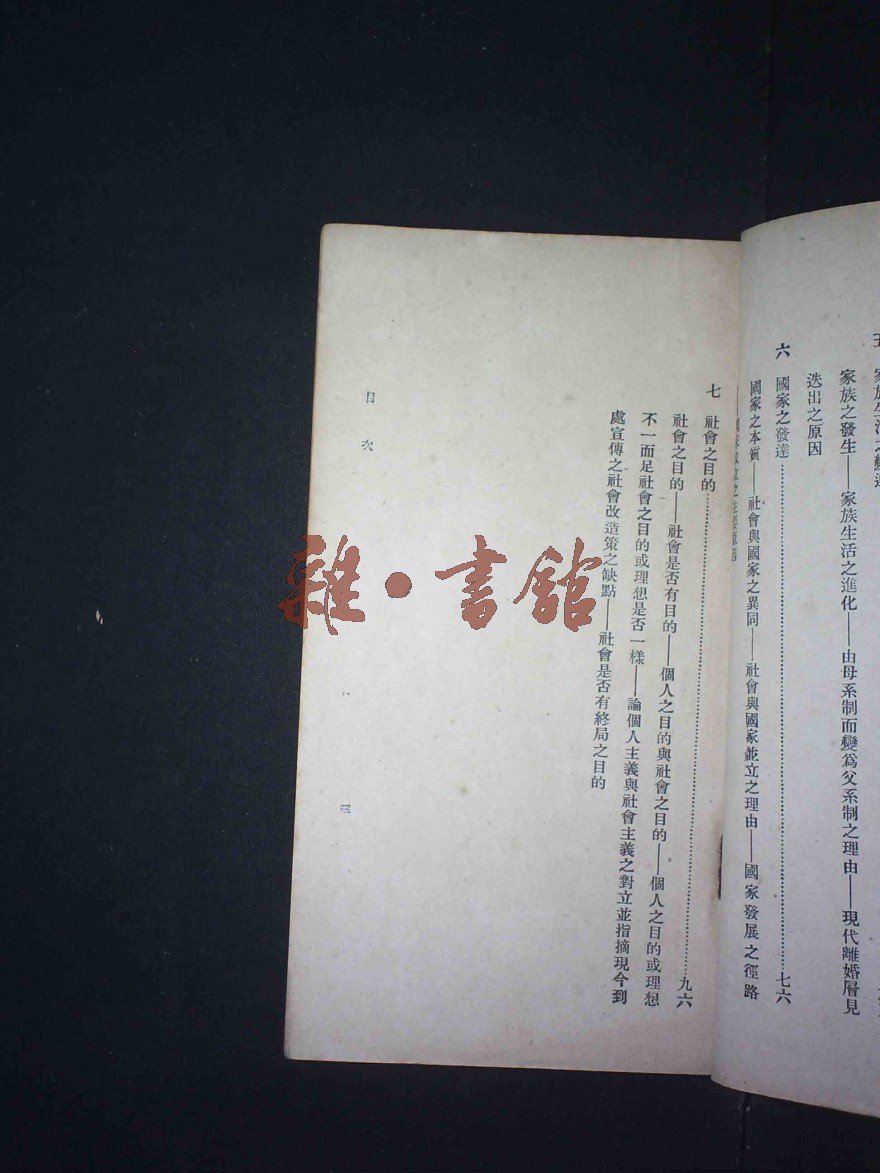 家族生活之變遷
家族之發生——家族生活之進化——由母系制而變爲父系制之理由——現代離婚層見
迭出之原因
六 國家之發達……七六
國家之本質——社會與國家之異同——社會與國家並立之理由——國家發展之徑路
七 社會之目的……九六
社會之目的——社會是否有目的——個人之目的與社會之目的——個人之目的或理想
不一而足社會之目的或理想是否一樣——論個人主義與社會主義之對立並指摘現今到
處宣傳之社會改造策之缺點——社會是否有終局之目的
目次
三
雜·書館